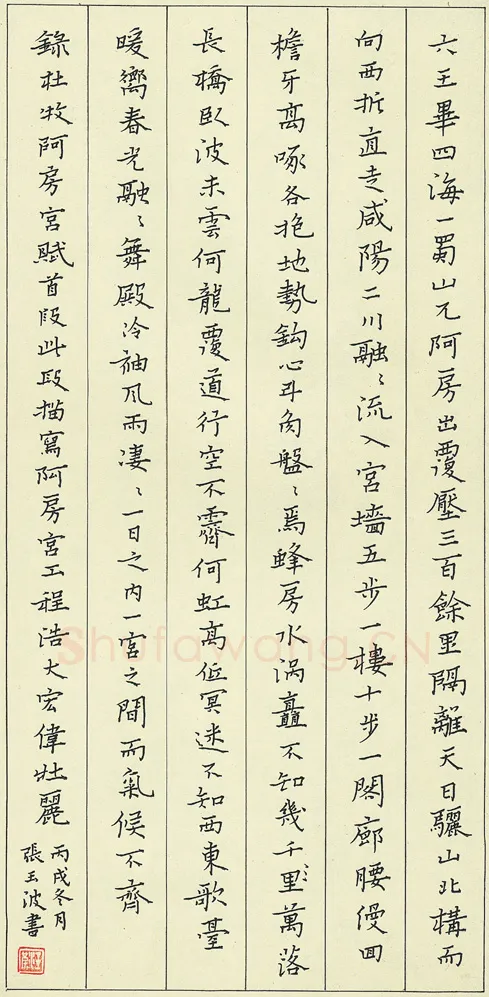 六王畢四海一蜀山兀阿房出覆壓三百餘里隔離天日驪山北構而
向西折直走咸陽二川融〻流入宮墻五步一樓十步一閣廊腰縵囬
檐牙高啄各抱地勢鈎心斗角盤〻焉蜂房水渦矗不知幾千里萬落
長橋臥波未雲何龍覆道行空不霽何虹高低冥迷不知西東歌臺
暖嚮春光融〻舞殿冷袖風雨凄〻一日之内一宮之間而氣候不齊
錄杜牧阿房宮賦首段此段描寫阿房宮工程浩大宏偉壯麗
丙戌冬月
張玉波書
Shufawang.CN